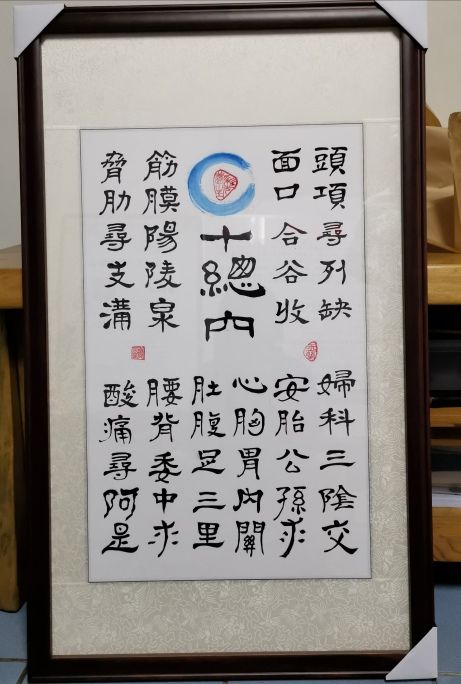 頭項尋列缺
面口合谷收
十總穴
筋膜陽陵泉
脅肋尋支溝
婦科三陰交
安胎公孫求
心胸胃內關
肚腹足三里
腰背委中求
酸痛尋阿是